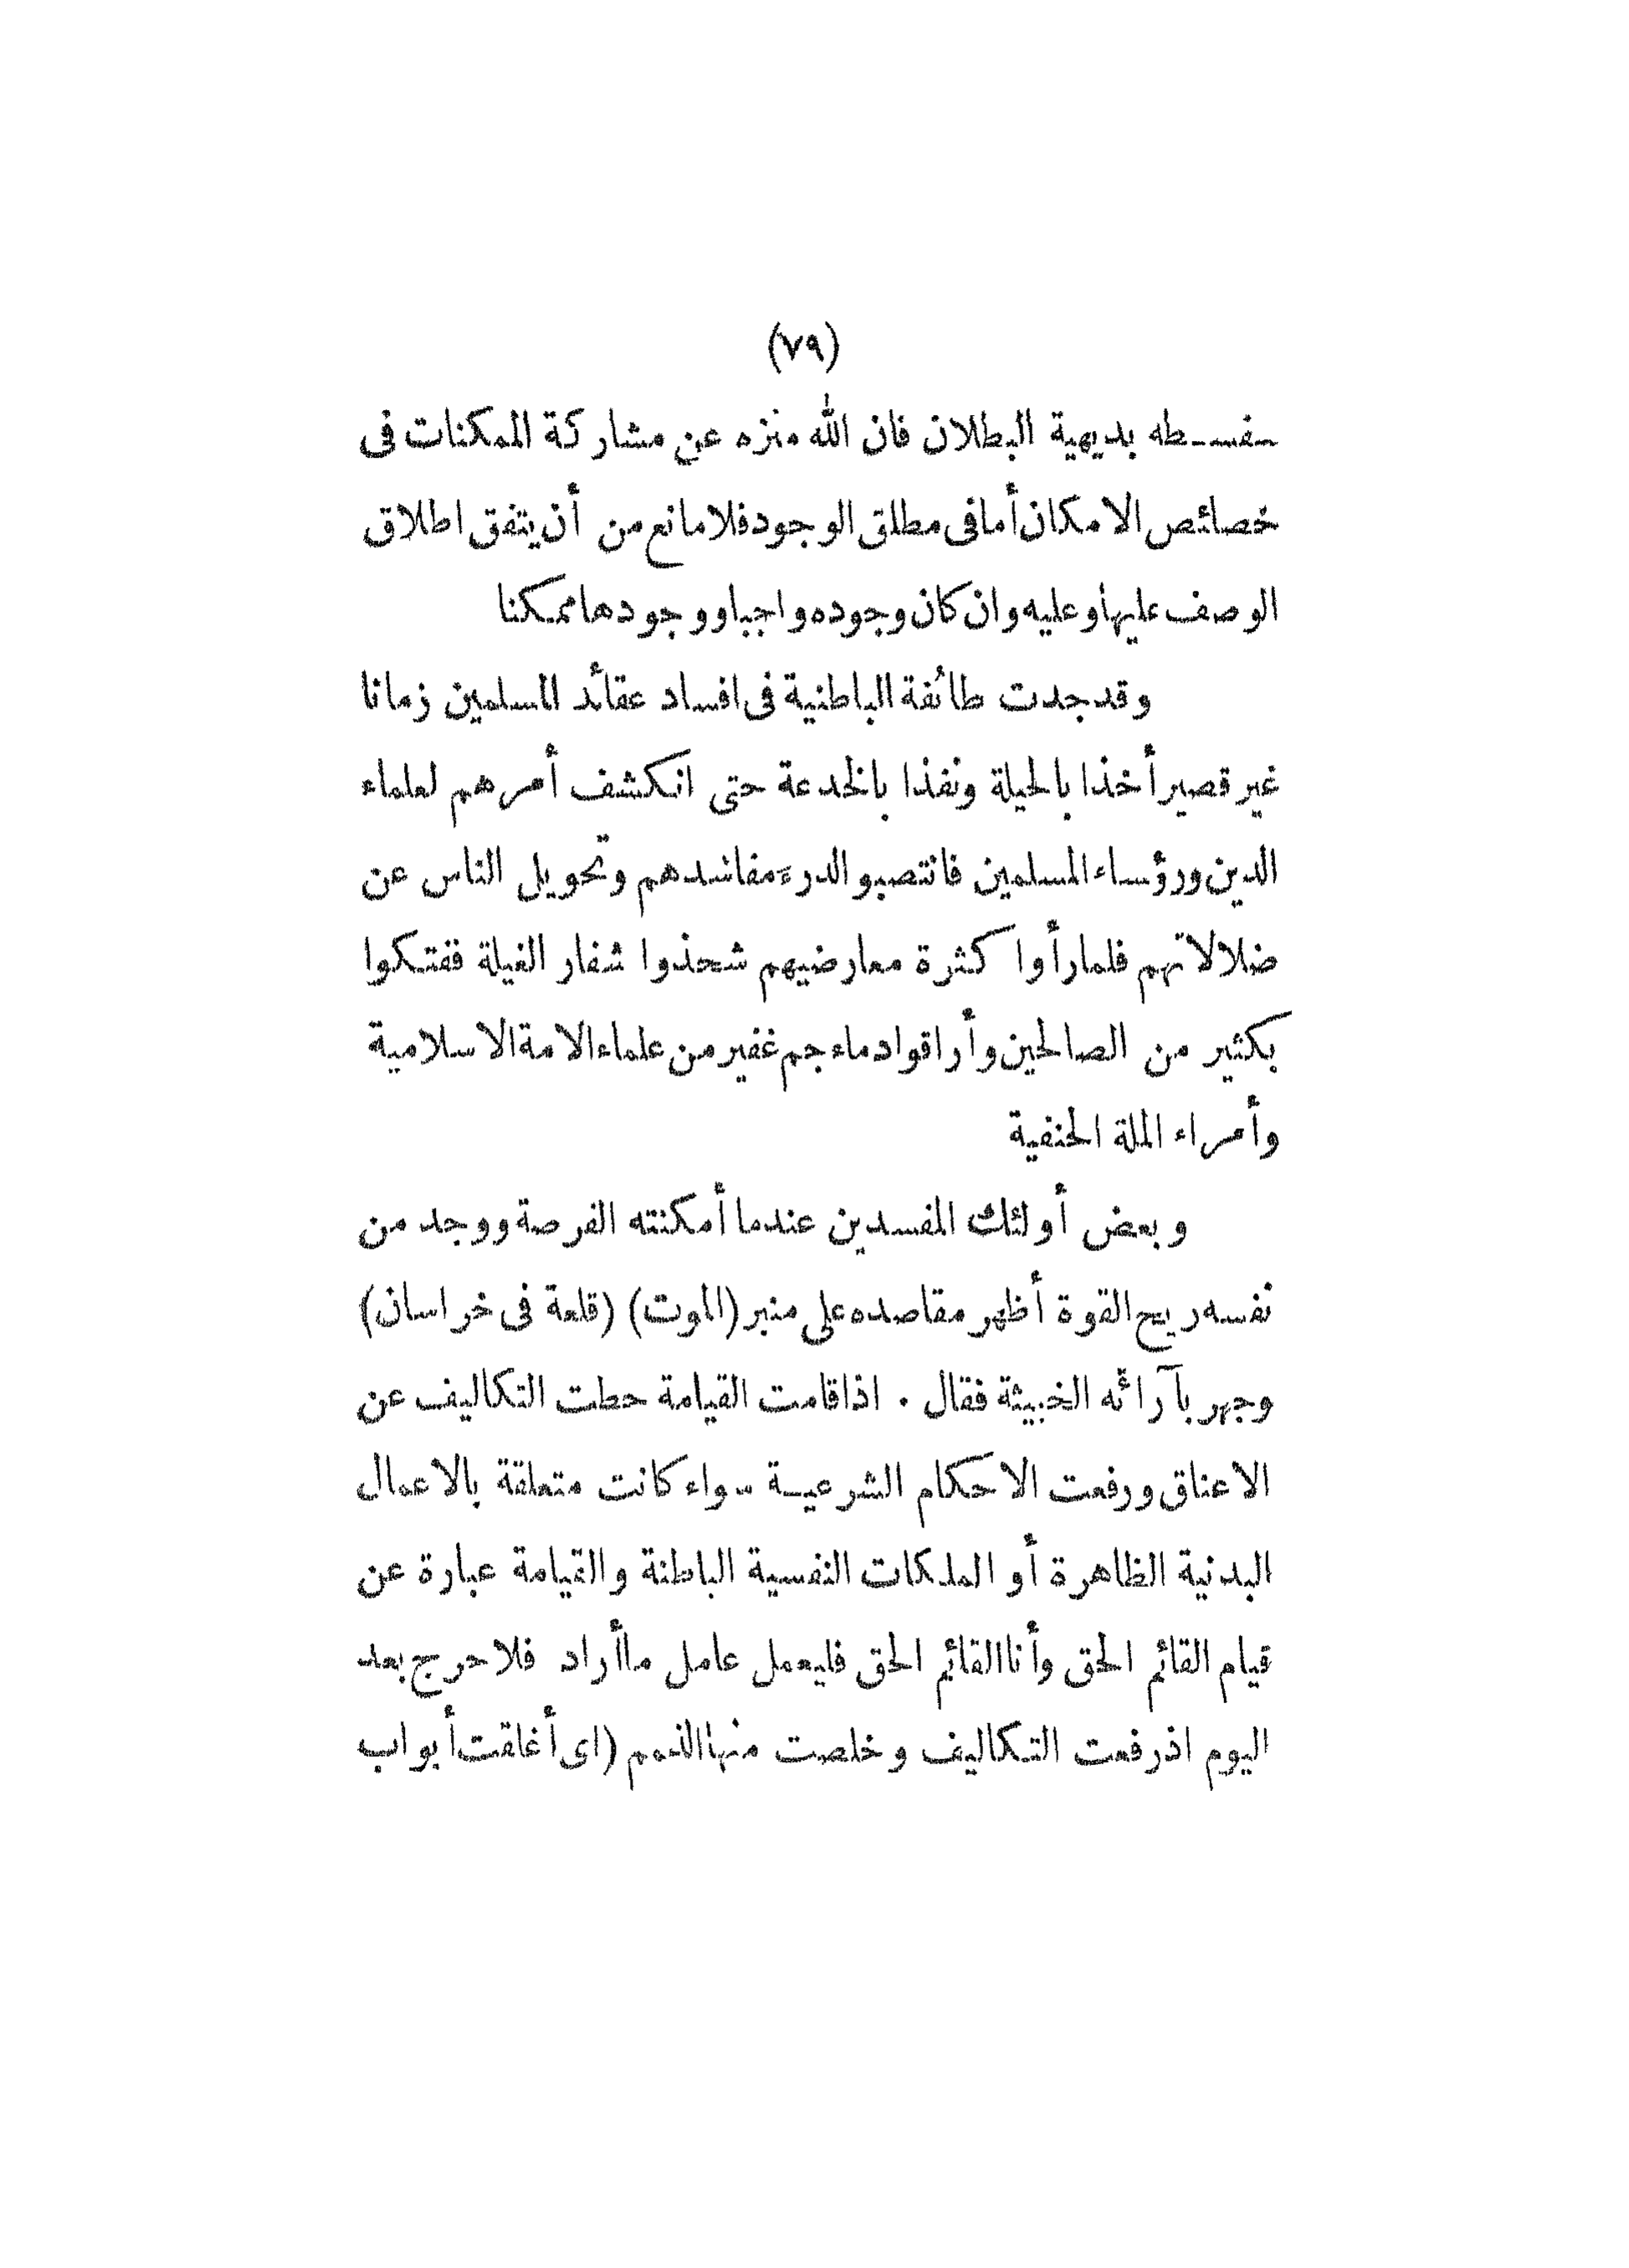 (٧٩)
سفسطه بديهية البطلان فان الله منزه عن مشاركة الممكنات فى
خصائص الامكان أما فى مطلق الوجود فلا مانع من أن يتفق اطلاق
الوصف عليها وعليه وان كان وجوده واجبا ووجودها ممكنا
وقد جدت طائفة الباطنية فى افساد عقائد المسلمين زمانا
غير قصير أخذا بالحيلة ونفذا بالخدعة حتى انكشف أمرهم لعلماء
الدين ورؤساء المسلمين فانتصبوا لدرء مفاسدهم وتحويل الناس عن
ضلالاتهم فلما رأوا كثرة معارضيهم شحذوا شفار الغيلة ففتكوا
بكثير من الصالحين وأراقوا دماء جم غفير من علماء الامة الاسلامية
وأمراء الملة الحنفية
وبعض أولئك المفسدين عندما أمكنته الفرصة ووجد من
نفسه ريح القوة أظهر مقاصده على منبر (الموت) (قلعة فى خراسان)
وجهر بآرائه الخبيثة فقال . اذا قامت القيامة حطت التكاليف عن
الاعناق ورفعت الاحكام الشرعية سواء كانت متعلقة بالاعمال
البدنية الظاهرة أو الملكات النفسية الباطنة والقيامة عبارة عن
قيام القائم الحق وأنا القائم الحق فليعمل عامل ما أراد فلا حرج بعد
اليوم اذ رفعت التكاليف وخلصت منها الذمم (اى أغلقت أبواب